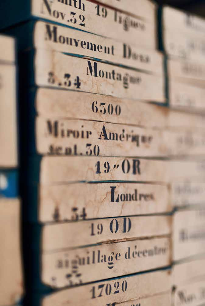 Zénith 19 Lignes
Nov.32
Mouvement Doxa
8.34 Montagne
6300
Miroir Amérique
sept.30
19‴OR
Londres
4.34
19 OD
aiguillage décentré
.33
17020